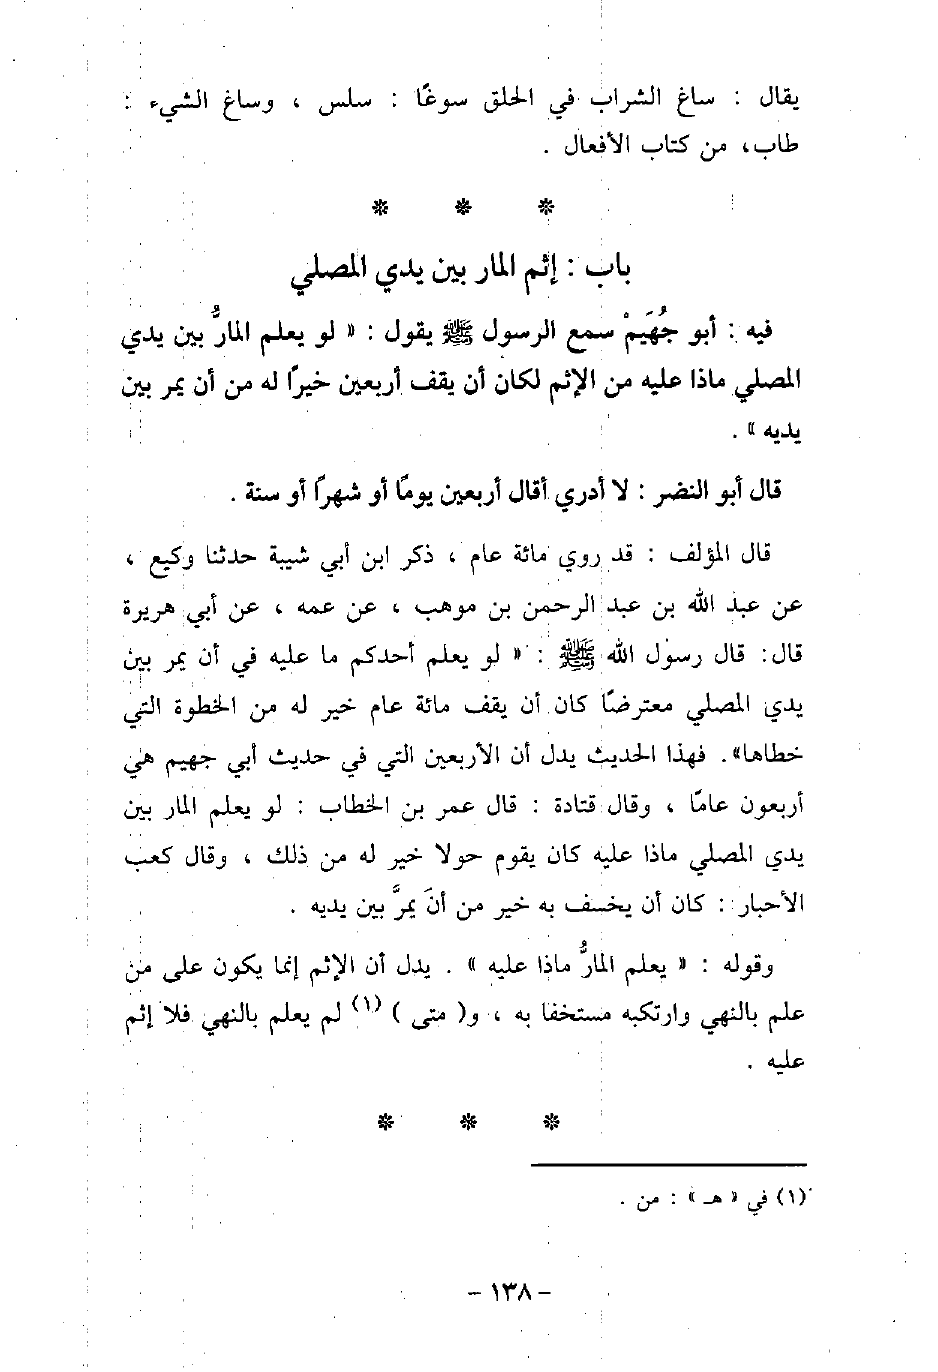 يقال : ساغ الشراب في الحلق سوغًا : سلس ، وساغ الشيء :
طاب، من كتاب الأفعال .
* * *
باب : إثم المار بين يدي المصلي
فيه : أبو جُهَيمْ سمع الرسول ﷺ يقول : « لو يعلم المارُّ بين يدي
المصلي ماذا عليه من الإثم لكان أن يقف أربعين خيرًا له من أن يمر بين
يديه » .
قال أبو النضر : لا أدري أقال أربعين يومًا أو شهرًا أو سنة .
قال المؤلف : قد روي مائة عام ، ذكر ابن أبي شيبة حدثنا وكيع ،
عن عبد الله بن عبد الرحمن بن موهب ، عن عمه ، عن أبي هريرة
قال: قال رسول الله ﷺ : « لو يعلم أحدكم ما عليه في أن يمر بين
يدي المصلي معترضًا كان أن يقف مائة عام خير له من الخطوة التي
خطاها». فهذا الحديث يدل أن الأربعين التي في حديث أبي جهيم هي
أربعون عامًا ، وقال قتادة : قال عمر بن الخطاب : لو يعلم المار بين
يدي المصلي ماذا عليه كان يقوم حولا خير له من ذلك ، وقال كعب
الأحبار : كان أن يخسف به خير من أن يمرَّ بين يديه .
وقوله : « يعلم المارُّ ماذا عليه » . يدل أن الإثم إنما يكون على من
علم بالنهي وارتكبه مستخفا به ، و( متى ) (١) لم يعلم بالنهي فلا إثم
عليه .
* * *
(١) في « هـ » : من .
- ١٣٨ -